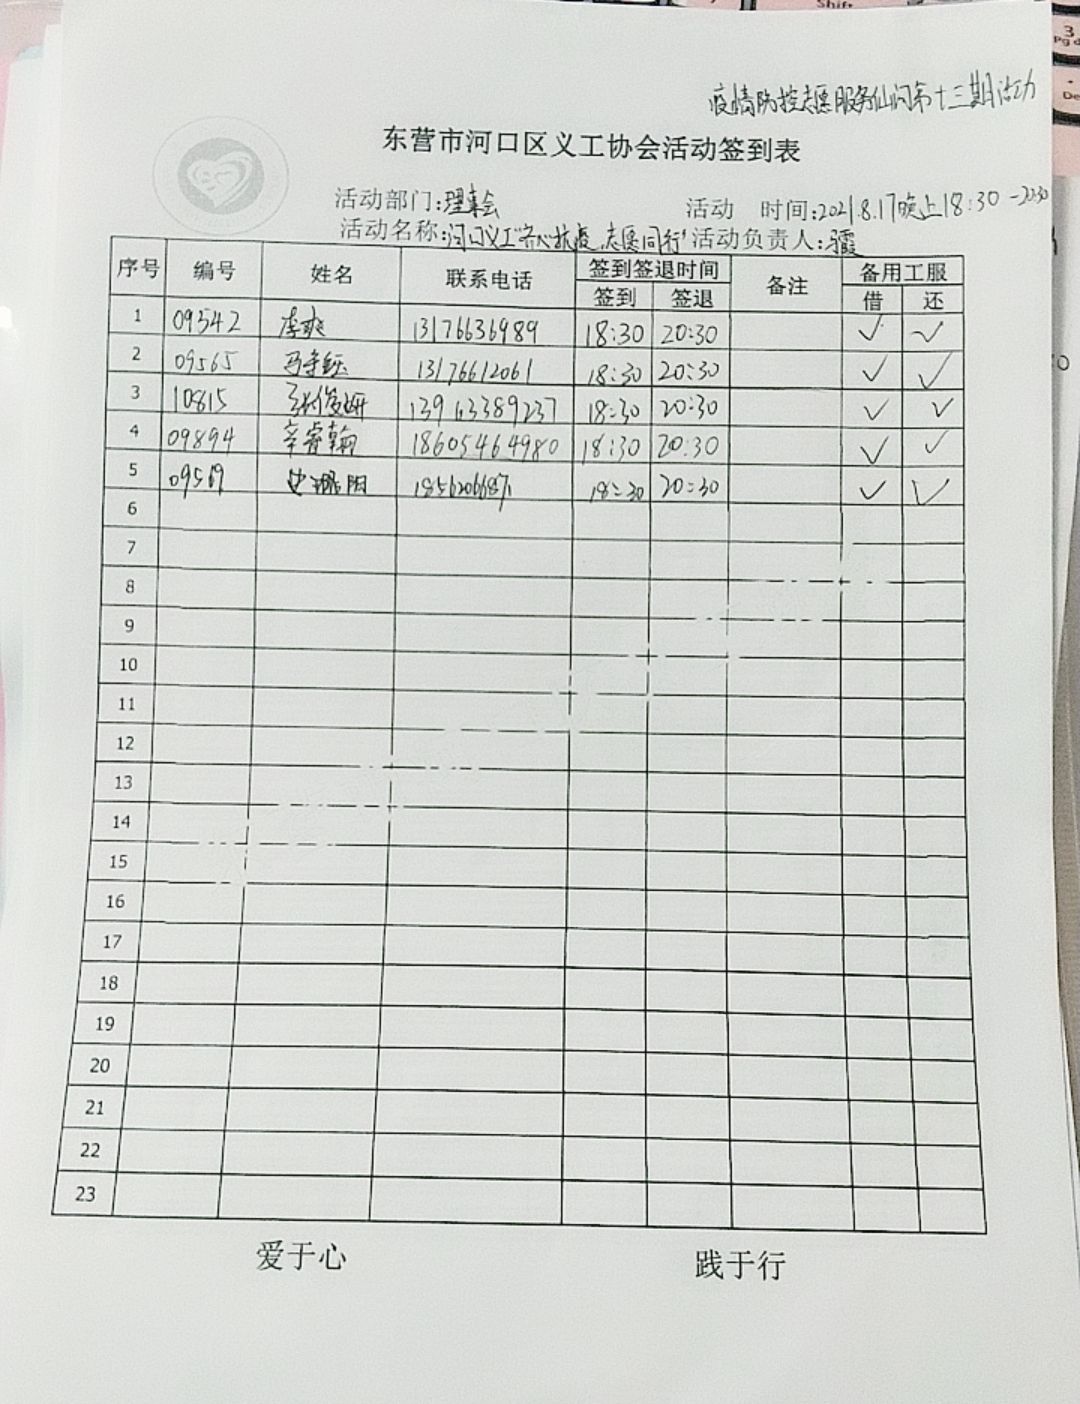 Shift
3
Pg d
De
疫情防控志愿服务仙河第十三期活动
东营市河口区义工协会活动签到表
活动部门:理事会 活动 时间:2021.8.17晚上18:30-20:30
活动名称:河口义工"齐心抗疫,志愿同行" 活动负责人:
序号 编号 姓名 联系电话 签到签退时间 备注 备用工服
签到 签退 借 还
1 09542 李爽 13176636989 18:30 20:30 ✓ ✓
2 09565 13176612061 18:30 20:30 ✓ ✓
3 10815 13963389237 18:30 20:30 ✓ ✓
4 09894 辛睿翰 18605464980 18:30 20:30 ✓ ✓
5 18:30 20:30 ✓ ✓
6
7
8
9
10
11
12
13
14
15
16
17
18
19
20
21
22
23
爱于心 践于行